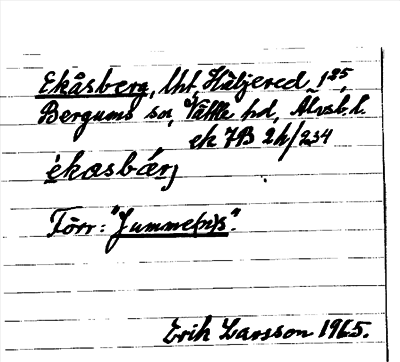 Ekåsberg, lht, Häljered 1²⁵,
Bergums sn, Vättle hd, Älvsb. l.
ek 7B 2h/234
èkasbárj
Förr: "Jumme(n)s".
Erik Larsson 1965.